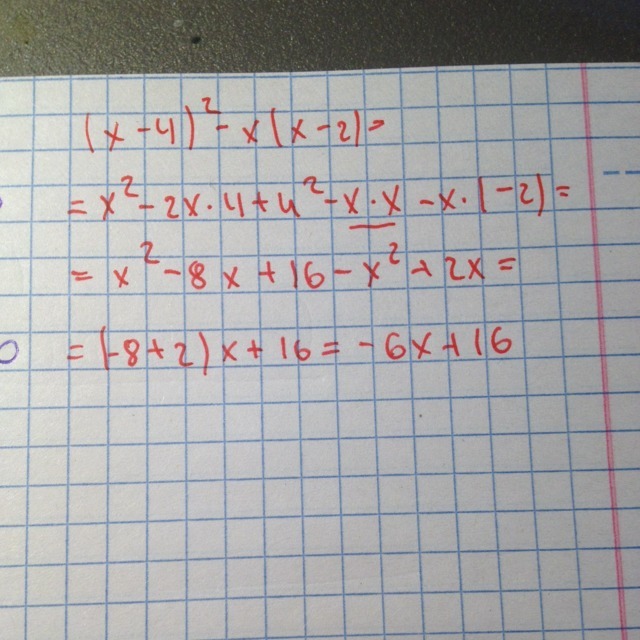 (x-4)²-x(x-2)=
=x²-2x·4+4²-x·x-x·(-2)=
=x²-8x+16-x²+2x=
=(-8+2)x+16=-6x+16